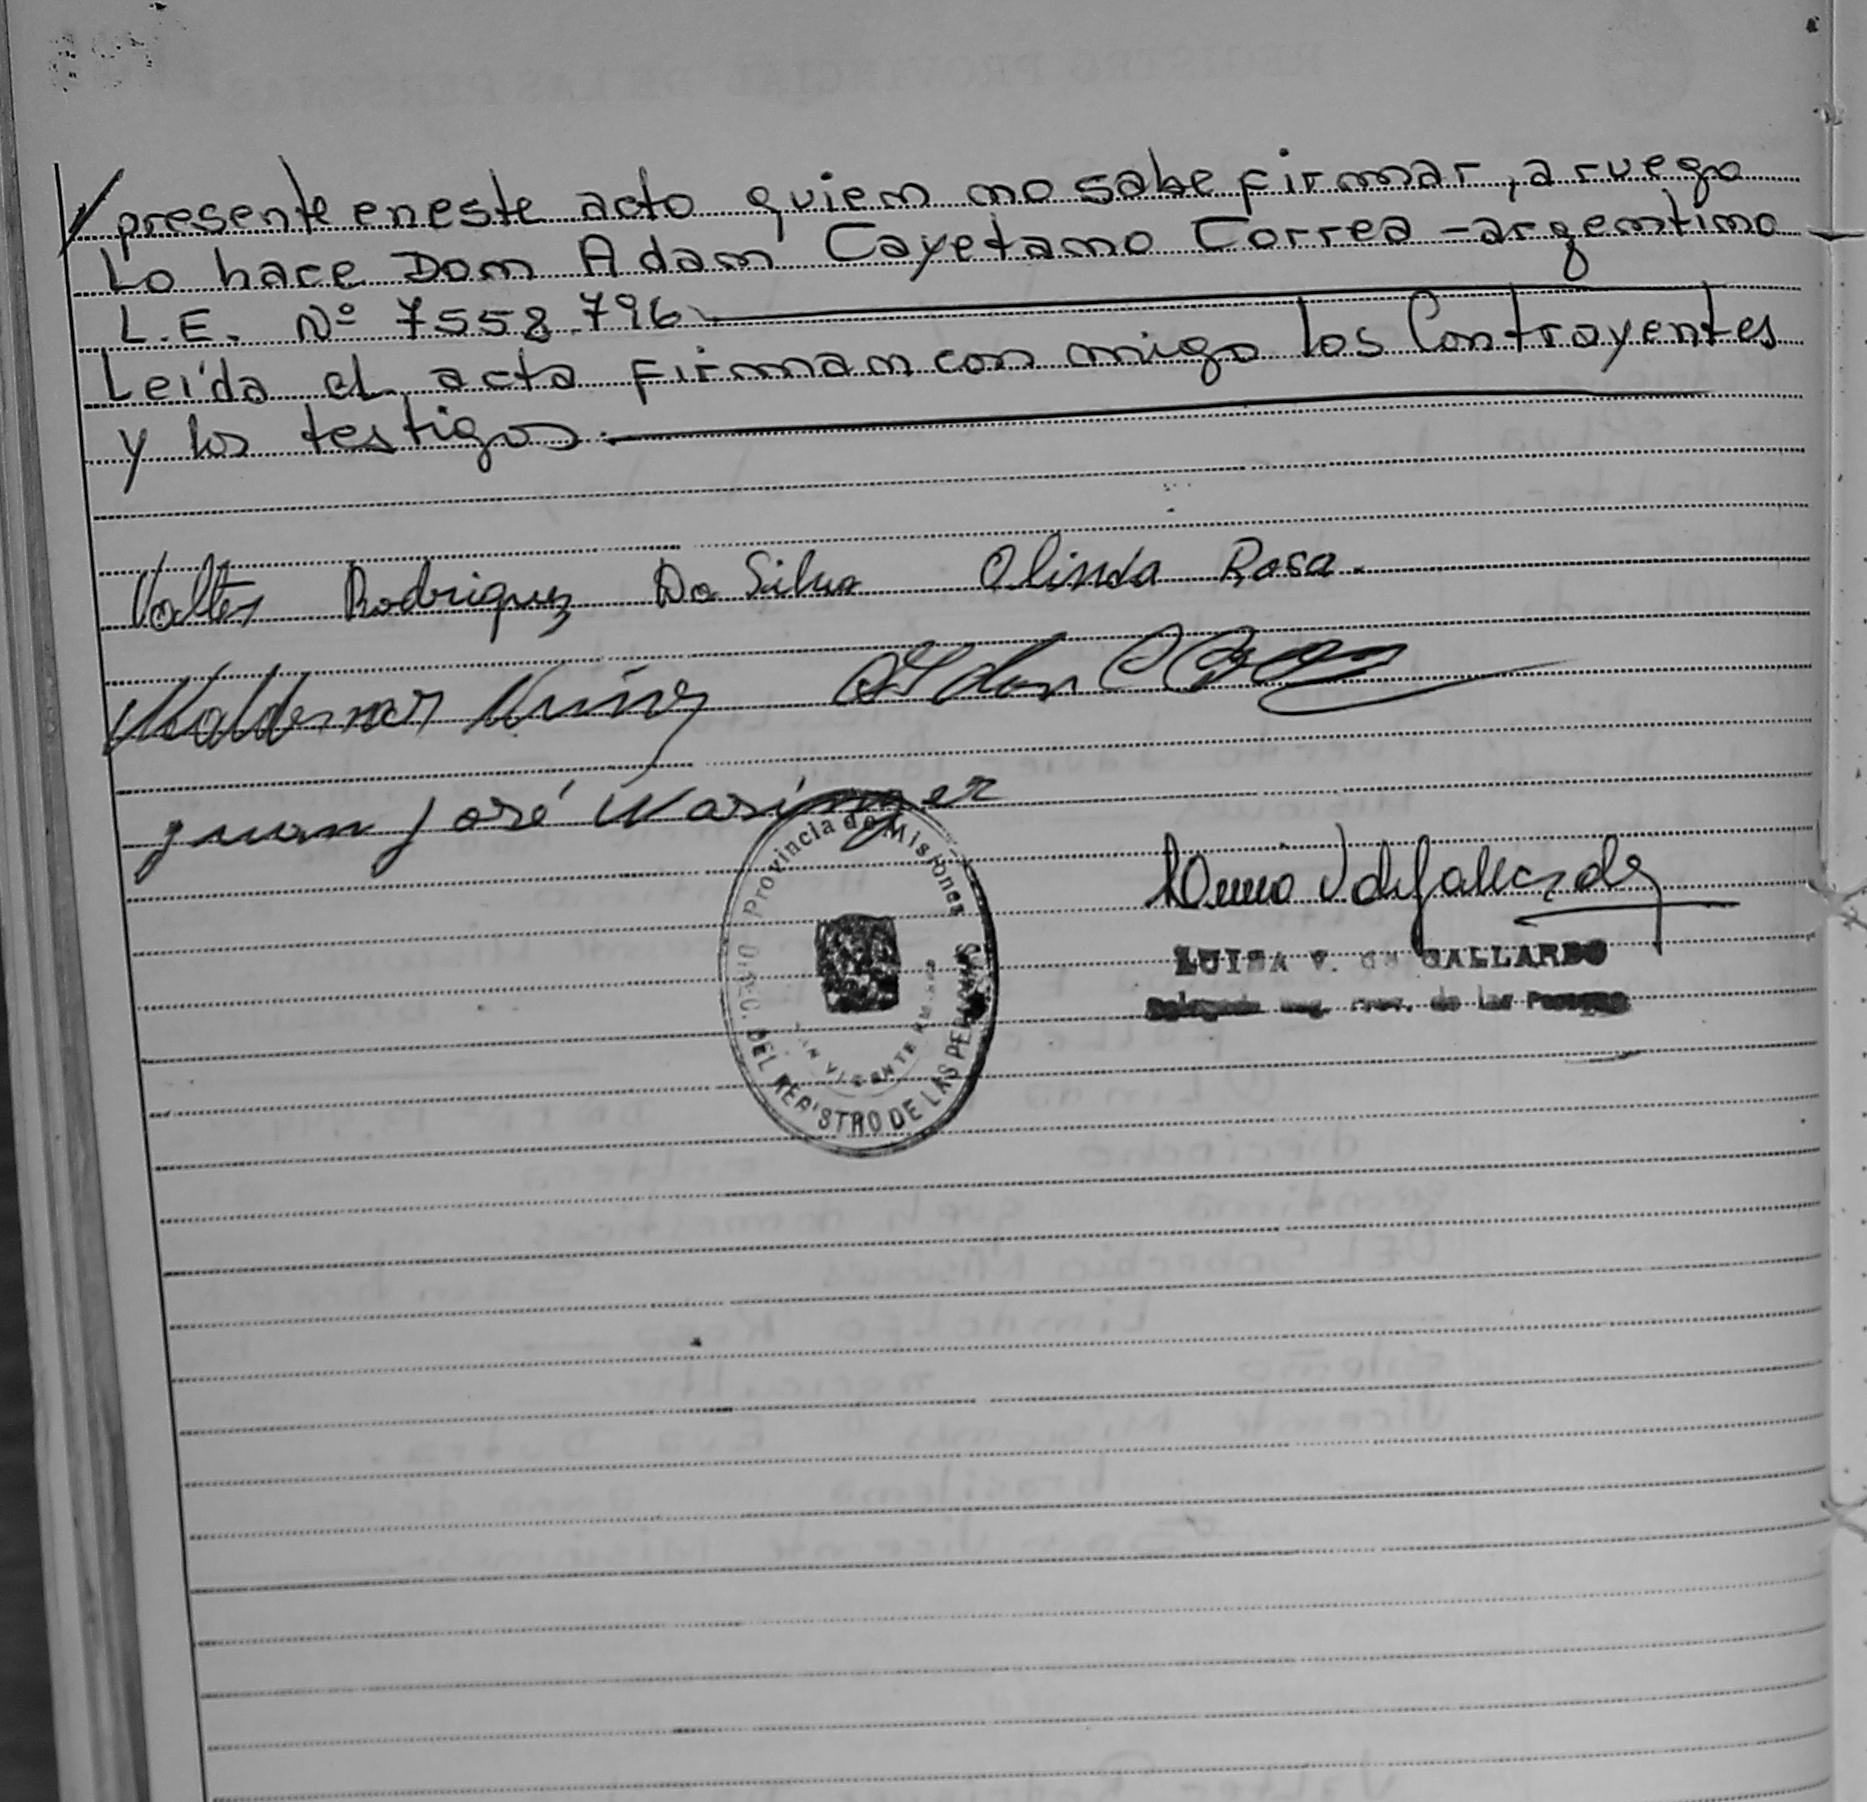 presente en este acto quien no sabe firmar, a ruego
Lo hace Don Adam Cayetano Correa - argentino
L.E. Nº 7558.796
Leída el acta firman con migo los Contrayentes
y los testigos.
Valter Rodriguez Da Silva Olinda Rosa.
Waldemar Nuñez
Juan José
Provincia de Misiones
DEL REGISTRO DE LAS PERSONAS
SAN VICENTE
LUISA V. de GALLARDO
Delegada Reg. Prov. de las Personas